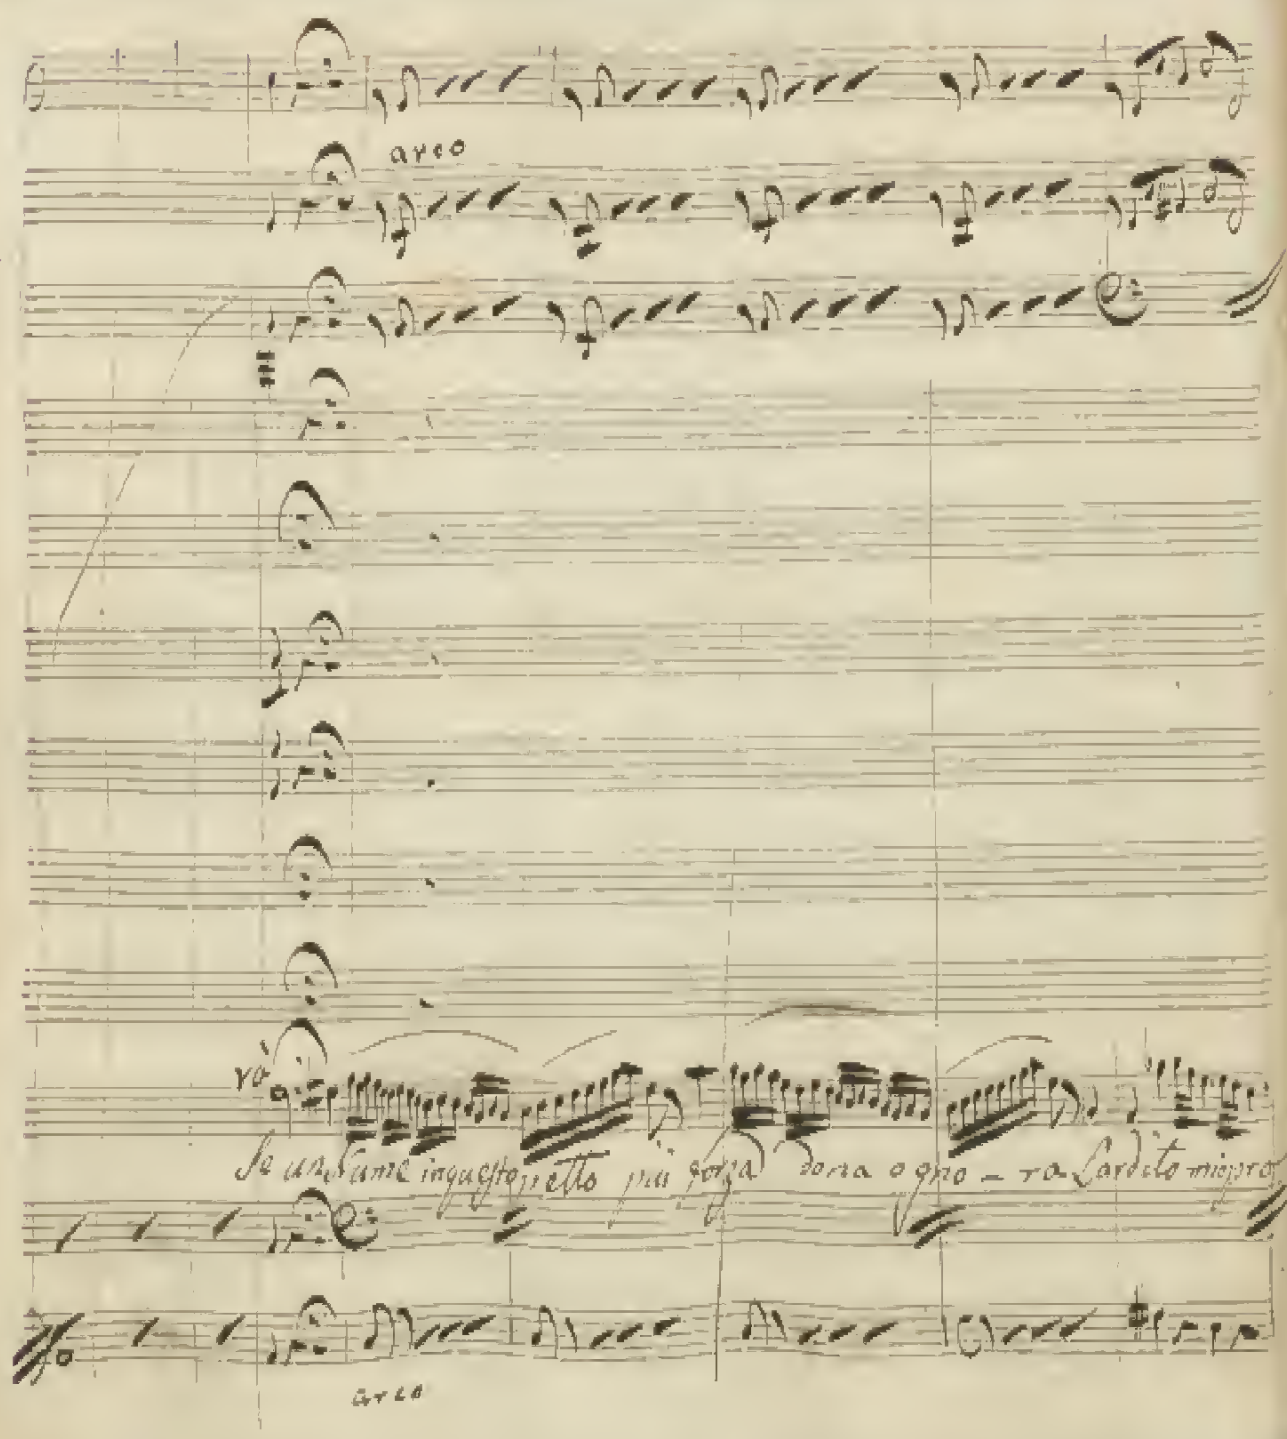 arco
rà
Se un Nume in questo petto più forza dona ogno - ra L'ardito mio pro
arco